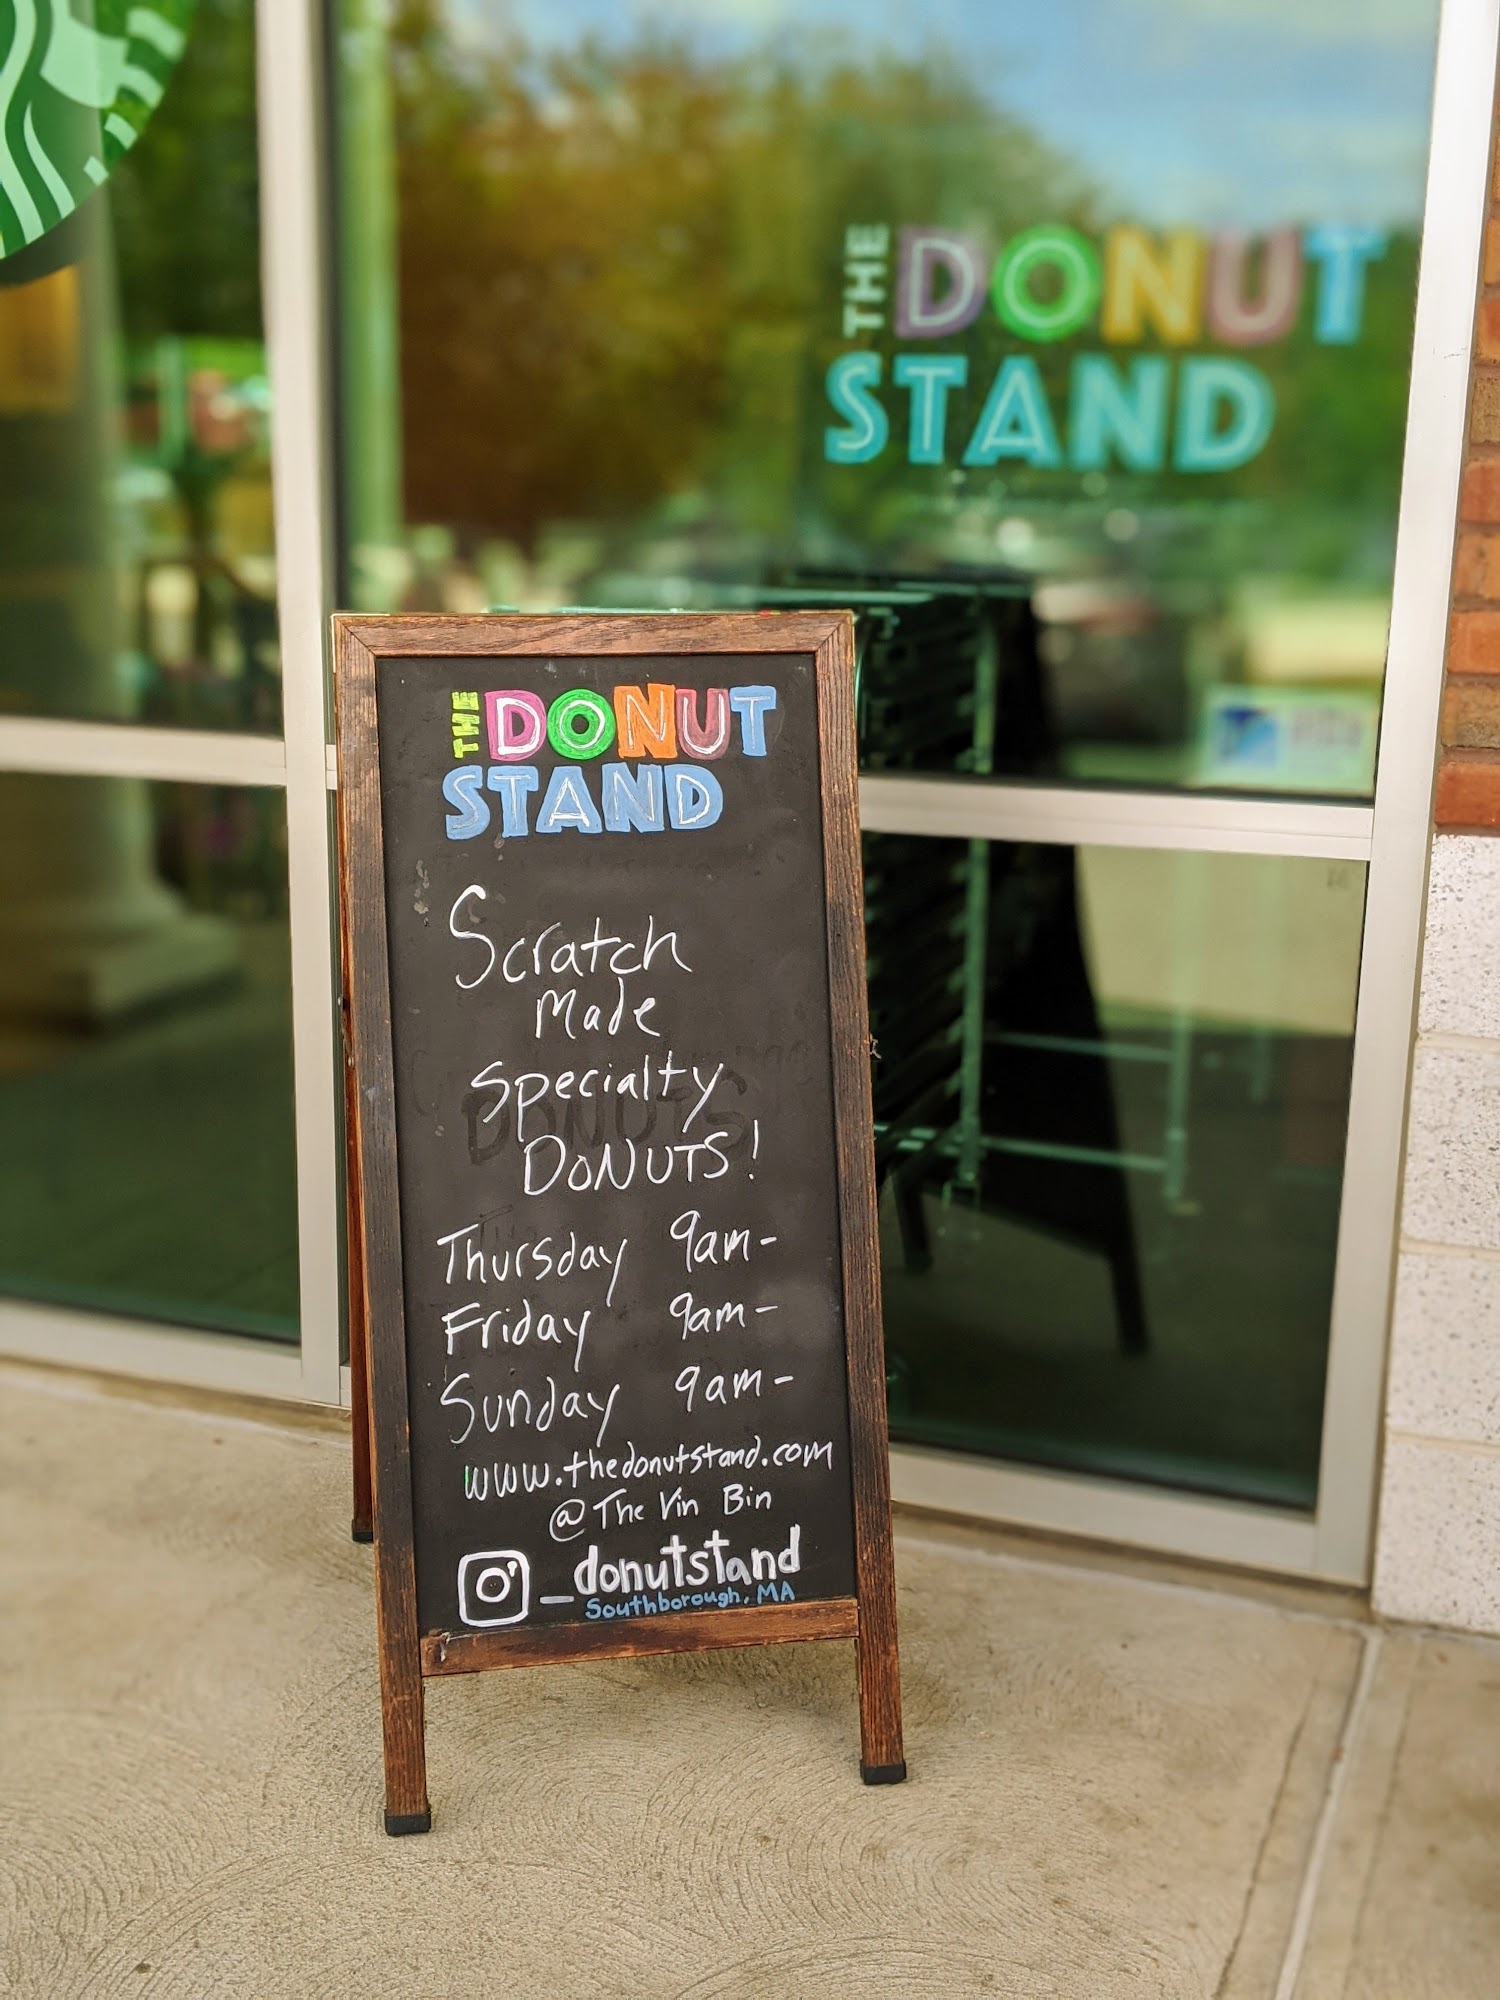 THE DONUT
STAND
THE DONUT
STAND
Scratch
Made
Specialty
DONUTS!
Thursday 9am-
Friday 9am-
Sunday 9am-
www.thedonutstand.com
@ The Vin Bin
_donutstand
Southborough, MA